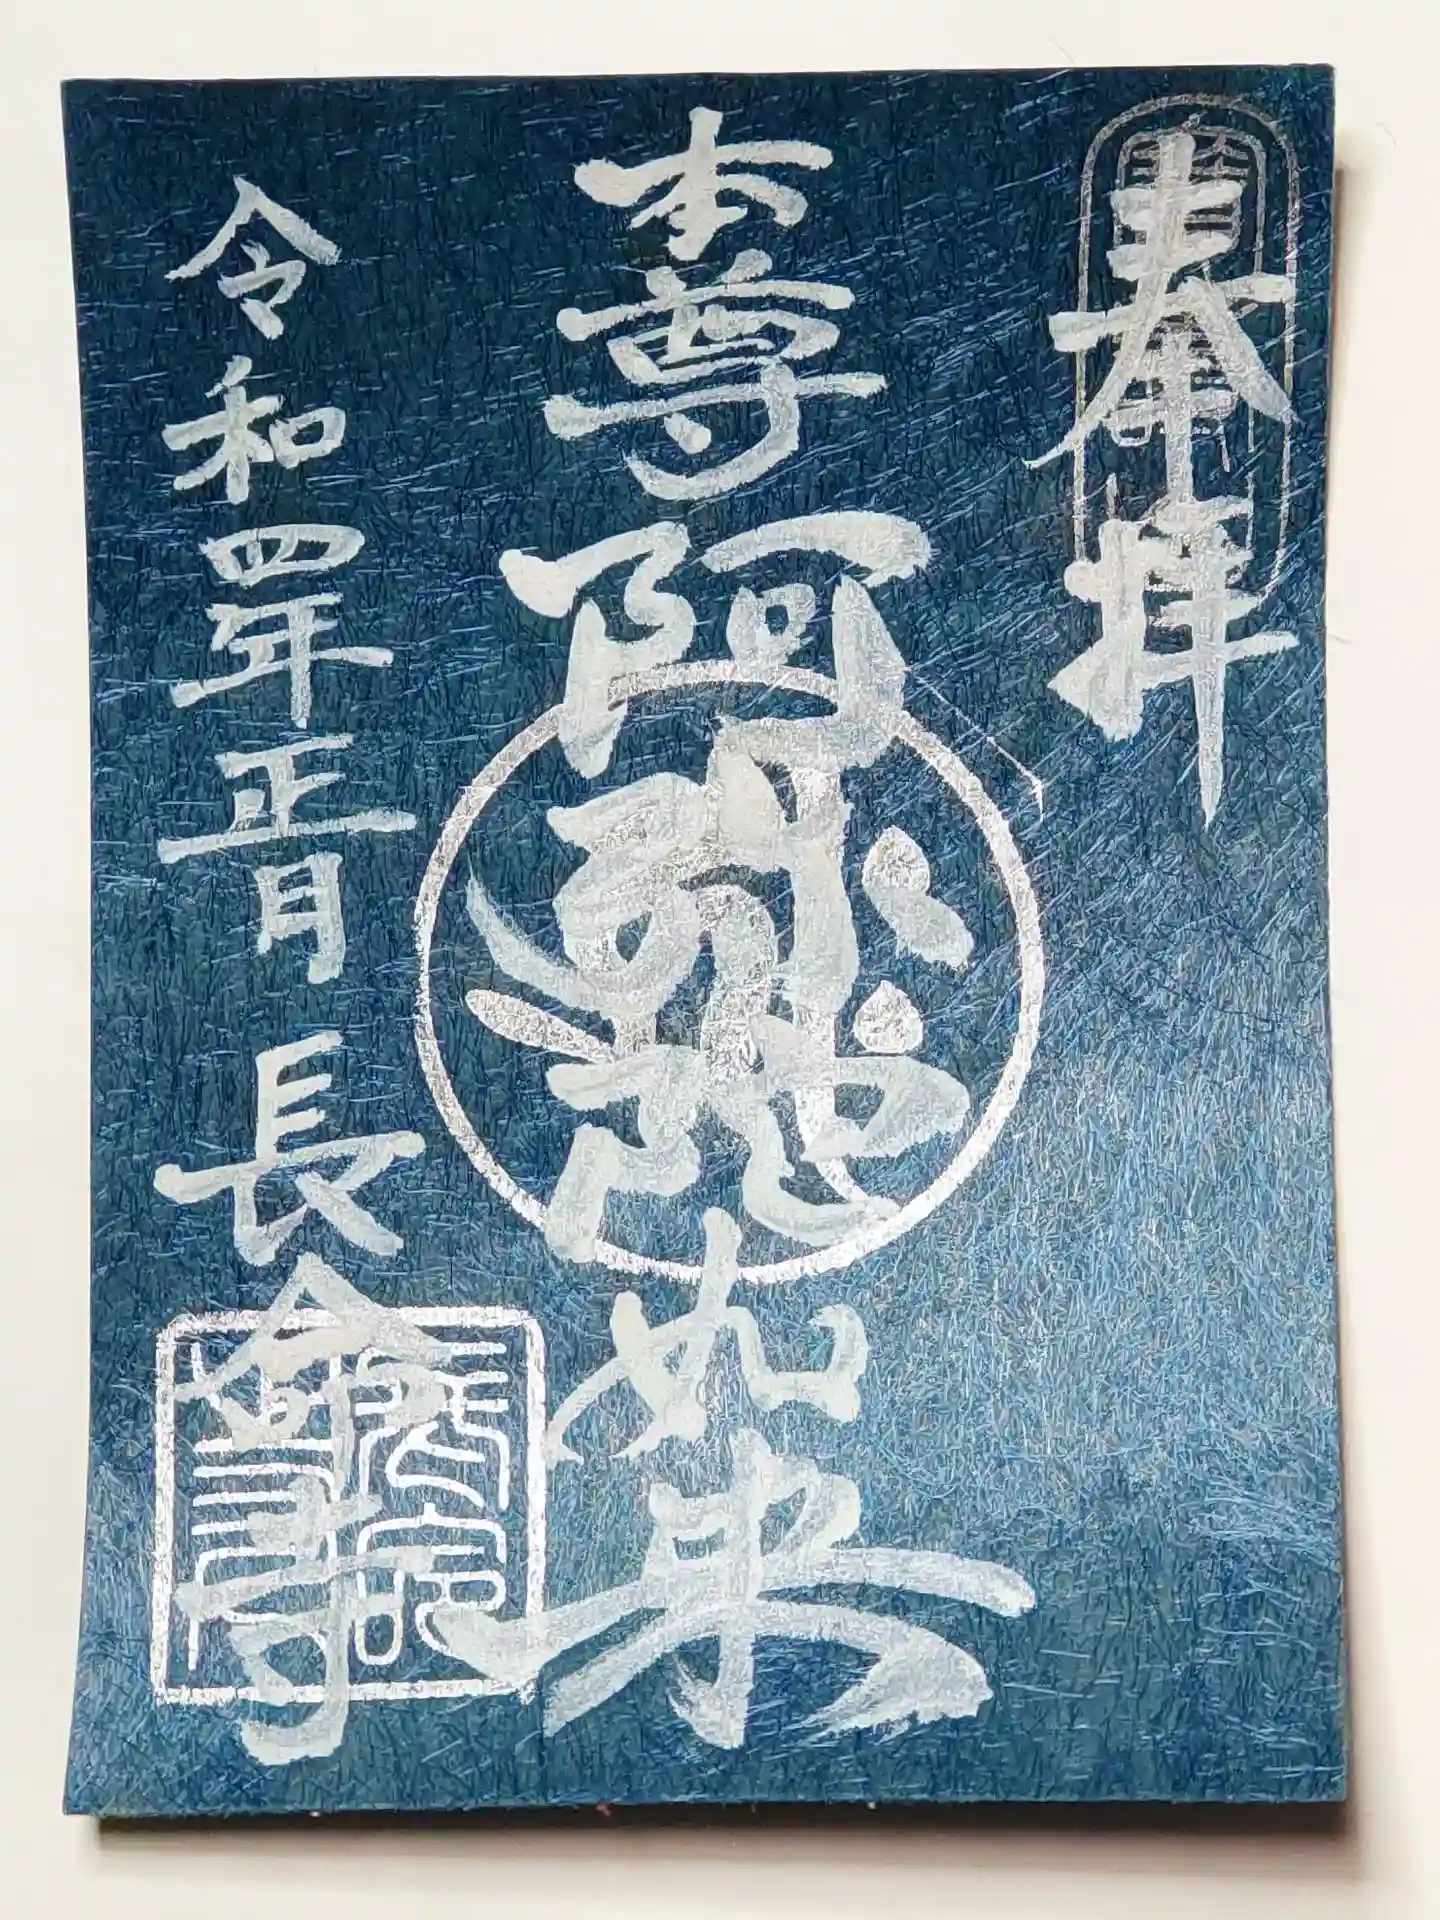 奉拝
本尊阿弥陀如来
令和四年正月 長命寺